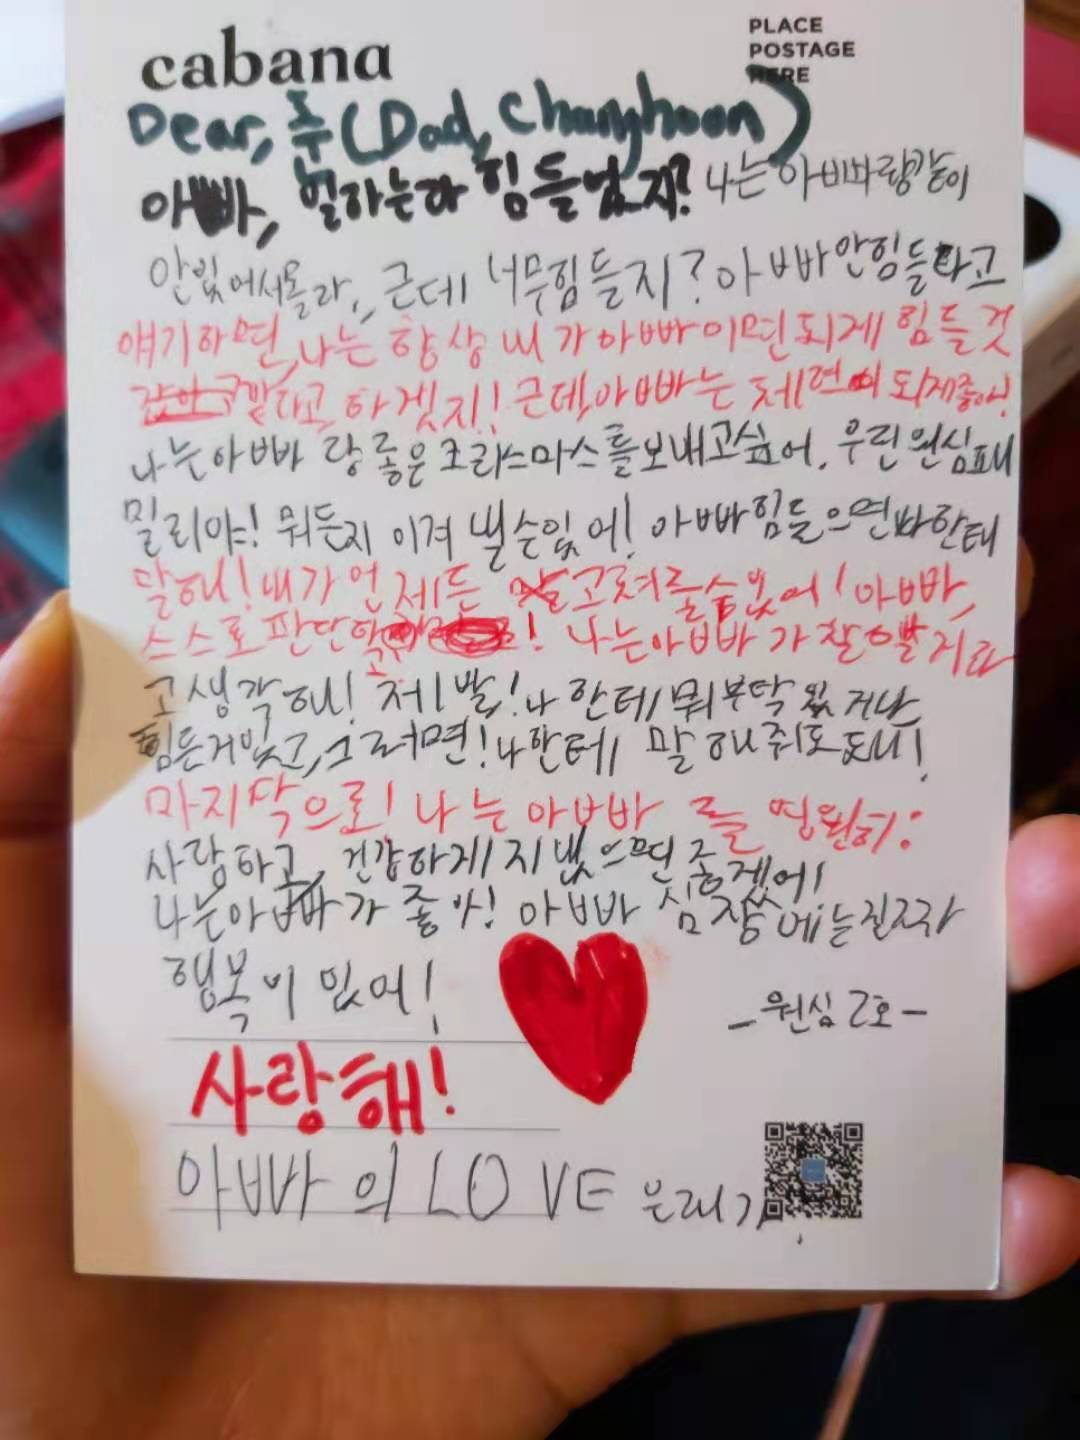 cabana
PLACE
POSTAGE
HERE
Dear, 훈 (Dad, Changhoon)
아빠, 일하는라 힘들었지? 나는 아빠랑 같이
안있어서 몰라,, 근데 너무힘들지? 아빠 안힘들다고
얘기하면, 나는 항상 내가 아빠이면 되게 힘들것
같다고 하겠지! 근데, 아빠는 체면이 되게좋아!
나는 아빠랑 좋은 크리스마스를 보내고싶어. 우린 원심패
밀리야! 뭐든지 이겨낼수있어! 아빠힘들으면 나한테
말해! 내가 언제든 고려줄수있어! 아빠,
스스로 판단하고! 나는 아빠가 잘할거라
고 생각해! 제발! 나한테 뭐 부탁있거나
힘든거있고, 그러면! 나한테 말해줘도돼!
마지막으로! 나는 아빠를 영원히:
사랑하고, 건강하게 지냈으면 좋겠어!
나는 아빠가 좋아! 아빠 심장에는 진짜
행복이 있어!
-원심 2호-
사랑해!
아빠의 LOVE